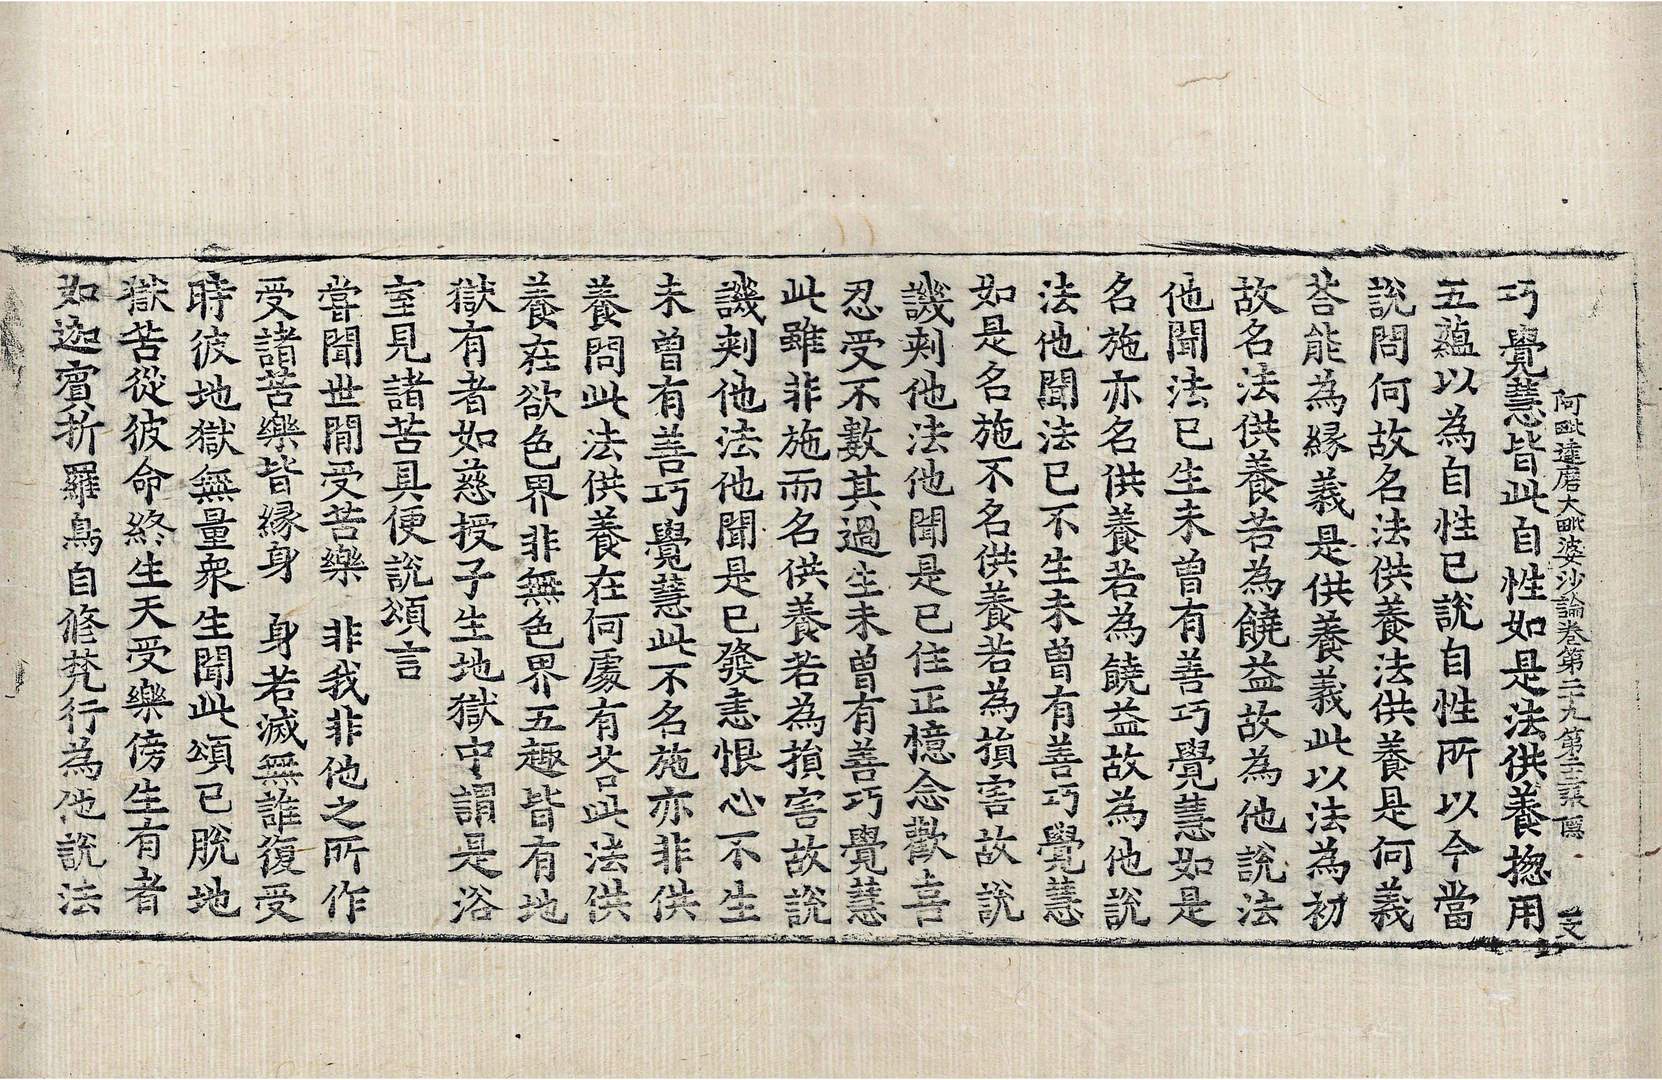 阿毗達磨大毗婆沙論卷第二十九 第十三張 㒹
巧覺慧皆此自性如是法供養揔用
五蘊以為自性已說自性所以今當
說問何故名法供養法供養是何義
荅能為緣義是供養義此以法為初
故名法供養若為饒益故為他說法
他聞法已生未曾有善巧覺慧如是
名施亦名供養若為饒益故為他說
法他聞法已不生未曾有善巧覺慧
如是名施不名供養若為損害故說
譏刾他法他聞是已住正憶念歡喜
忍受不數其過生未曾有善巧覺慧
此雖非施而名供養若為損害故說
譏刾他法他聞是已發恚恨心不生
未曾有善巧覺慧此不名施亦非供
養問此法供養在何處有荅此法供
養在欲色界非無色界五趣皆有地
獄有者如慈授子生地獄中謂是浴
室見諸苦具便說頌言
嘗聞世間受苦樂 非我非他之所作
受諸苦樂皆緣身 身若滅無誰復受
時彼地獄無量衆生聞此頌已脫地
獄苦從彼命終生天受樂傍生有者
如迦賓折羅鳥自修梵行為他說法